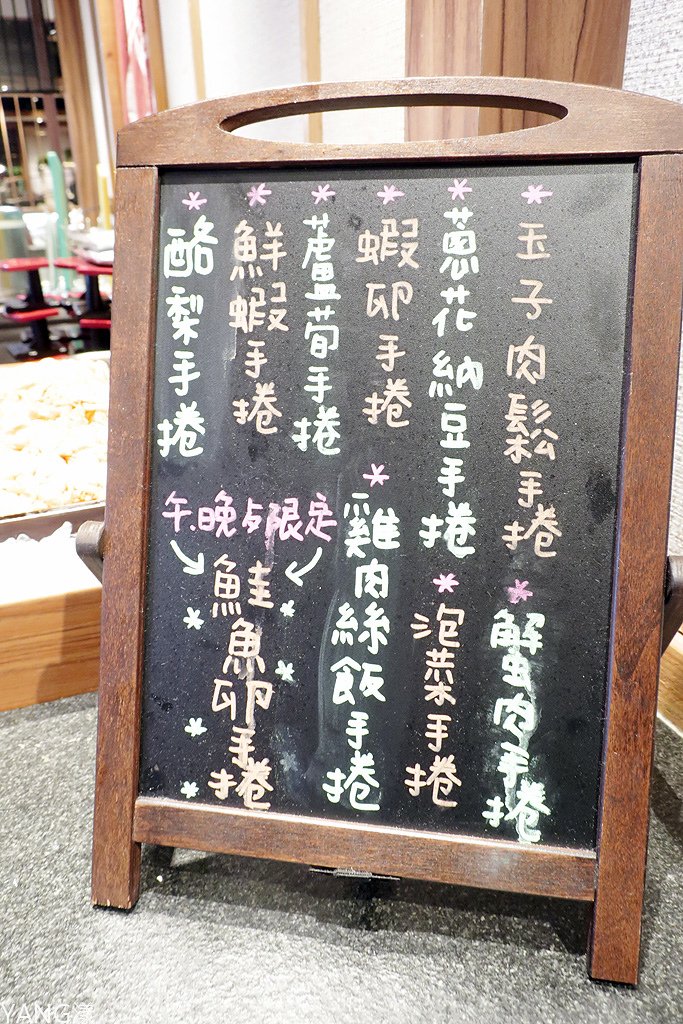 玉子肉鬆手捲
蔥花納豆手捲
蝦卵手捲
蘆筍手捲
鮮蝦手捲
酪梨手捲
蟹肉手捲
泡菜手捲
雞肉絲飯手捲
午.晚歺限定
鮭魚卵手捲
YANG漾